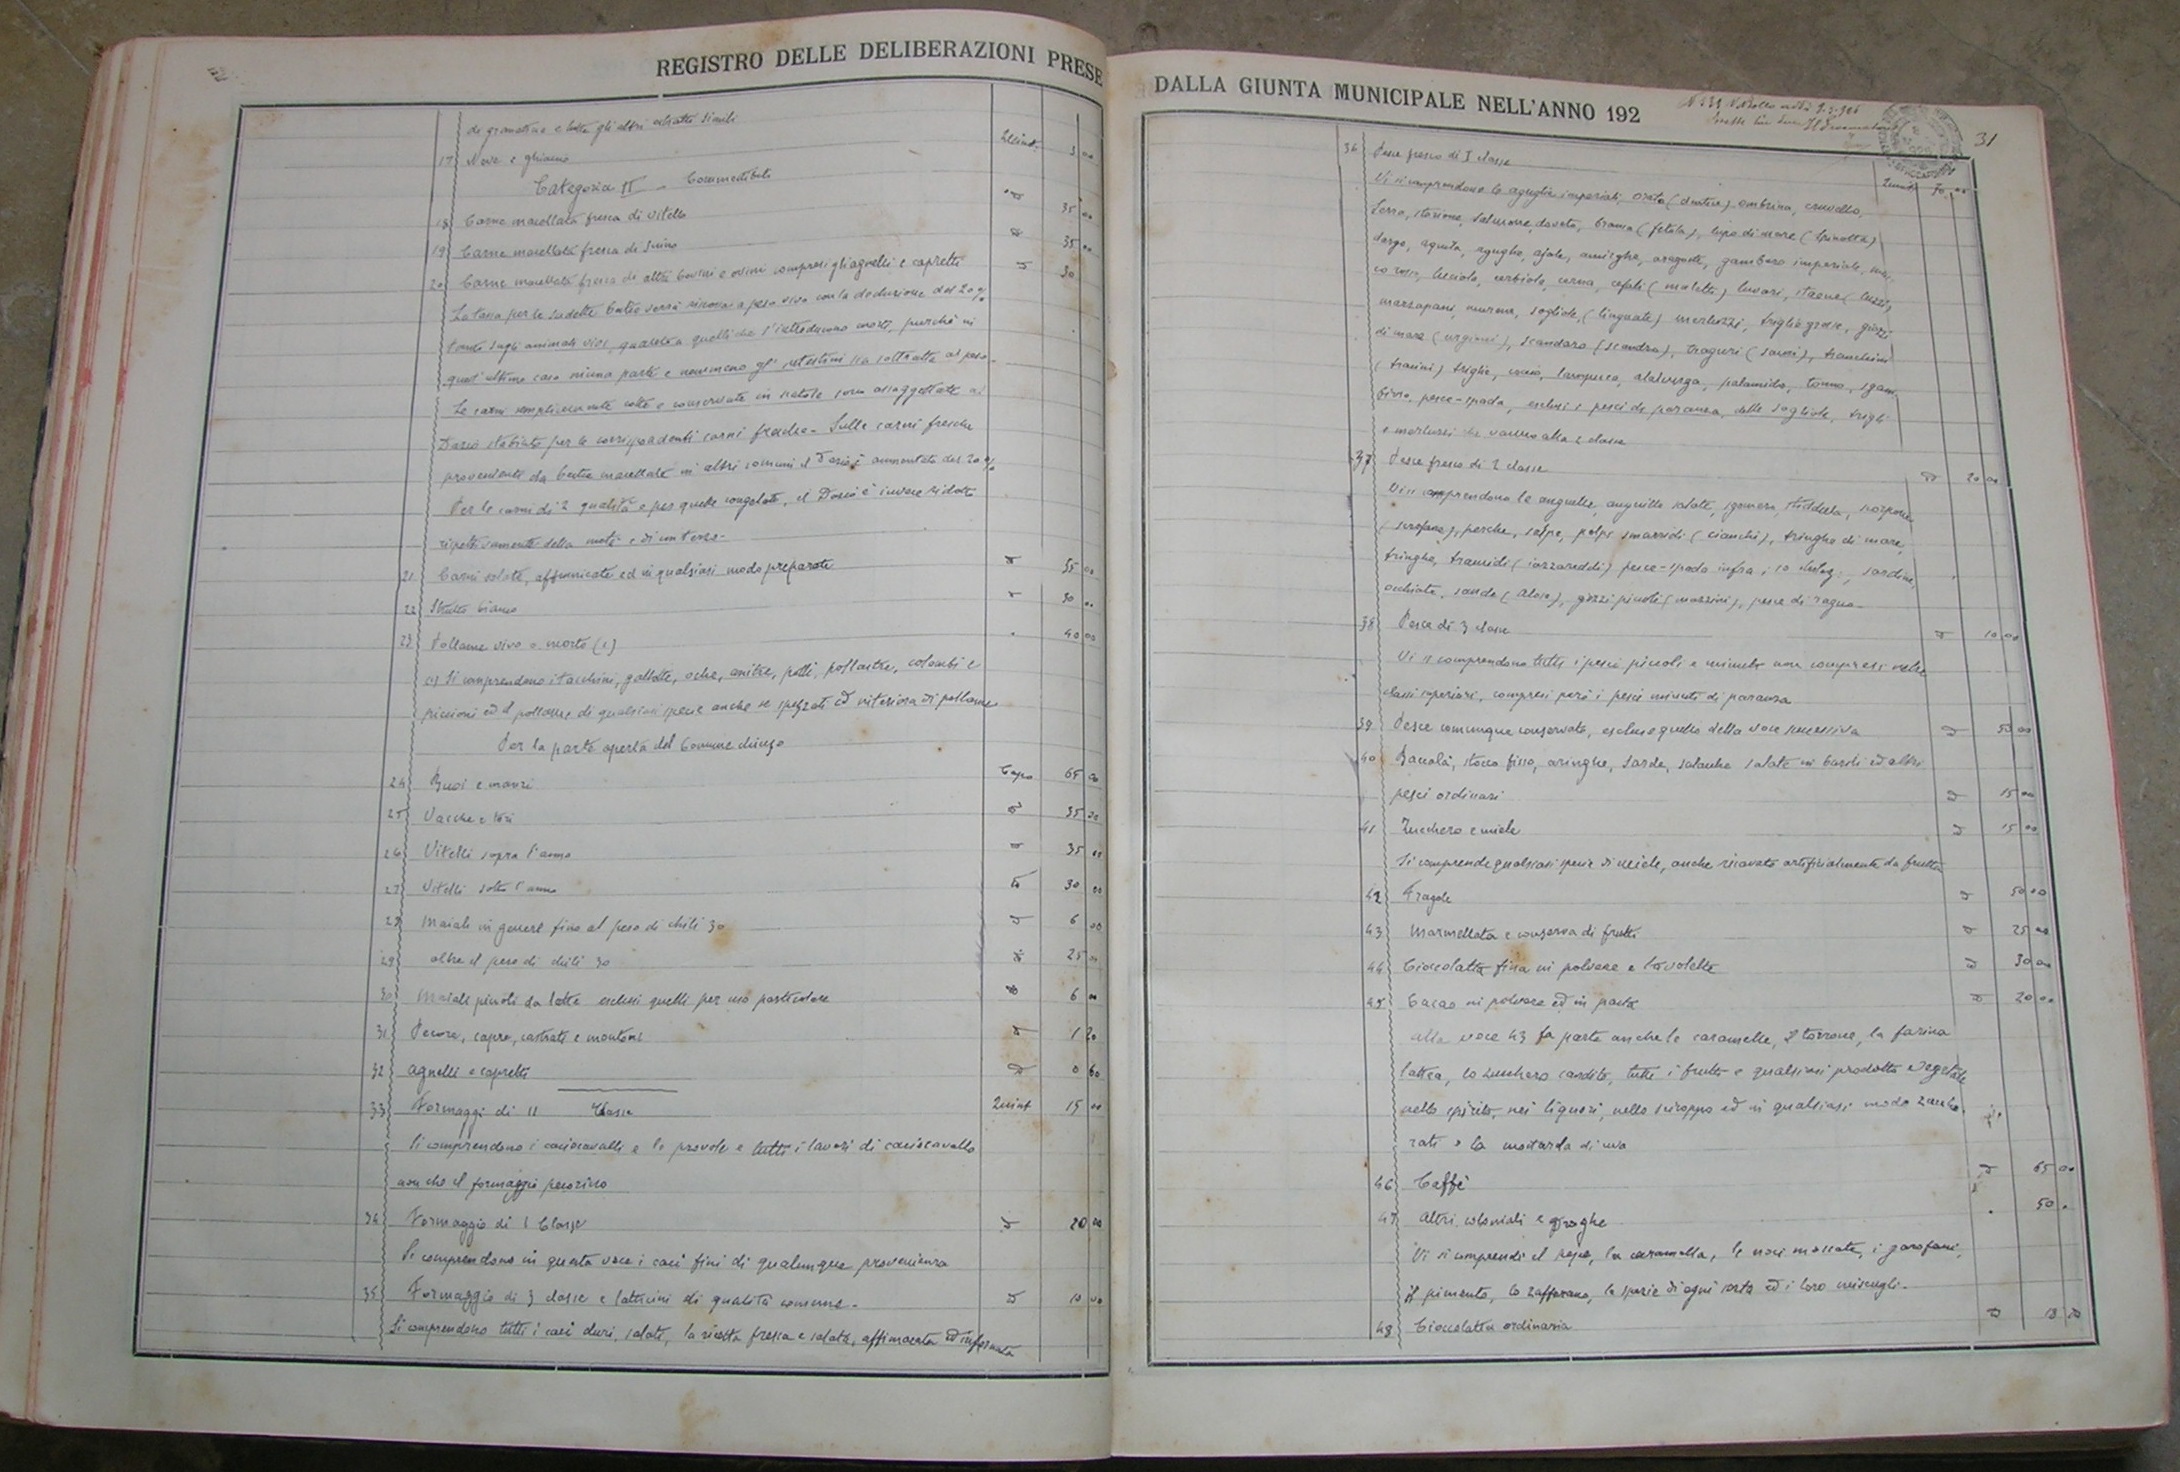 REGISTRO DELLE DELIBERAZIONI PRESE
de granatina e tutti gli altri estratti simili
17 Neve e ghiaccio Quint. 3 00
Categoria II - Commestibili
18 Carne macellata fresca di vitello 35 00
19 Carne macellata fresca di suino 35 00
20 Carne macellata fresca di altri bovini e ovini compresi gli agnelli e capretti 30
La tassa per le sudette bestie verrà riscossa a peso vivo con la deduzione del 20%
tanto sugli animali vivi, quanto a quelli che s'introducono morti, purchè in
quest'ultimo caso niuna parte e nemmeno gl'intestini sia sottratta al peso.
Le carni semplicemente cotte e conservate in scatole sono assoggettate al
Dazio stabilito per le corrispondenti carni fresche. Sulle carni fresche
provenienti da bestie macellate in altri comuni il Dazio è aumentato del 20%
Per le carni di 2 qualità e per quelle congelate, il Dazio è invece ridotto
rispettivamente della metà e di un terzo.
21 Carni salate, affumicate ed in qualsiasi modo preparate 55 00
22 Strutto bianco 30 00
23 Pollame vivo o morto (1) 40 00
(1) Si comprendono i tacchini, gallotte, oche, anitre, polli, pollastre, colombi e
piccioni ed il pollame di qualsiasi specie anche se spezzati ed interiora di pollame
Per la parte aperta del Comune chiuso
24 Buoi e manzi Capo 65 00
25 Vacche e tori 35 00
26 Vitelli sopra l'anno 35 00
27 Vitelli sotto l'anno 30 00
28 Maiali in genere fino al peso di chili 30 6 00
29 oltre il peso di chili 30 25 00
30 Maiali piccoli da latte esclusi quelli per uso particolare 6 00
31 Pecore, capre, castrati e montoni 1 20
32 Agnelli e capretti 0 60
33 Formaggi di II Classe Quint 15 00
Si comprendono i caciocavalli e le provole e tutti i lavori di caciocavallo
non che il formaggio pecorino
34 Formaggio di 1 Classe 20 00
Si comprendono in questa voce i caci fini di qualunque provenienza
35 Formaggio di 3 classe e latticini di qualità comune. 10 00
Si comprendono tutti i caci duri, salati, la ricotta fresca e salata, affumicata ed infornata
DALLA GIUNTA MUNICIPALE NELL'ANNO 192
31
36 Pesce fresco di I classe Quint 70 00
Vi si comprendono le aguglie imperiali, orata (dentice) ombrina,
storione, salmone, lupo di mare (spinotta)
aragoste, gambero imperiale,
cerna, cefali (muletti) luvari,
marzapani, murena, sogliole, (linguate) merluzzi, triglie grosse,
di mare (urgioni), scandaro (scandra), traguri (sauri), tranchini
(tracini) triglie, palamido, tonno,
pesce-spada, esclusi i pesci di paranza, delle sogliole, trigli
e merluzzi che vanno alla 2 classe
37 Pesce fresco di 2 classe 20 00
Vi si comprendono le anguille, anguille salate,
(scrofane), perche, salpe, polpi smarridi (cianchi), tringhe di mare,
tringhe, tramidi pesce-spada infra i 10 sardine,
occhiate, gozzi piccoli (mazzini), pesce di ragno.
38 Pesce di 3 classe 10 00
Vi si comprendono tutti i pesci piccoli e minuti non compresi nelle
classi superiori, compresi però i pesci minuti di paranza
39 Pesce comunque conservato, escluso quello della voce successiva 50 00
40 Baccalà, stocco fisso, aringhe, sarde, salacche salate in barili ed altri
pesci ordinari 15 00
41 Zucchero e miele 15 00
Si comprende qualsiasi specie di miele, anche ricavato artificialmente da frutta
42 Fragole 50 00
43 Marmellata e conserva di frutta 25 00
44 Cioccolatta fina in polvere e tavolette 30 00
45 Cacao in polvere ed in pasta 20 00
alla voce 43 fa parte anche le caramelle, il torrone, la farina
lattea, lo zucchero candito, tutti i frutti e qualsiasi prodotto vegetale
nello spirito, nei liquori, nello sciroppo ed in qualsiasi modo zucche
rati e la mostarda di uva
46 Caffè 65 00
47 Altri coloniali e droghe 50
Vi si comprendi il pepe, la cannella, le noci moscate, i garofani,
il pimento, lo zafferano, le spezie di ogni sorta ed i loro miscugli.
48 Cioccolatta ordinaria